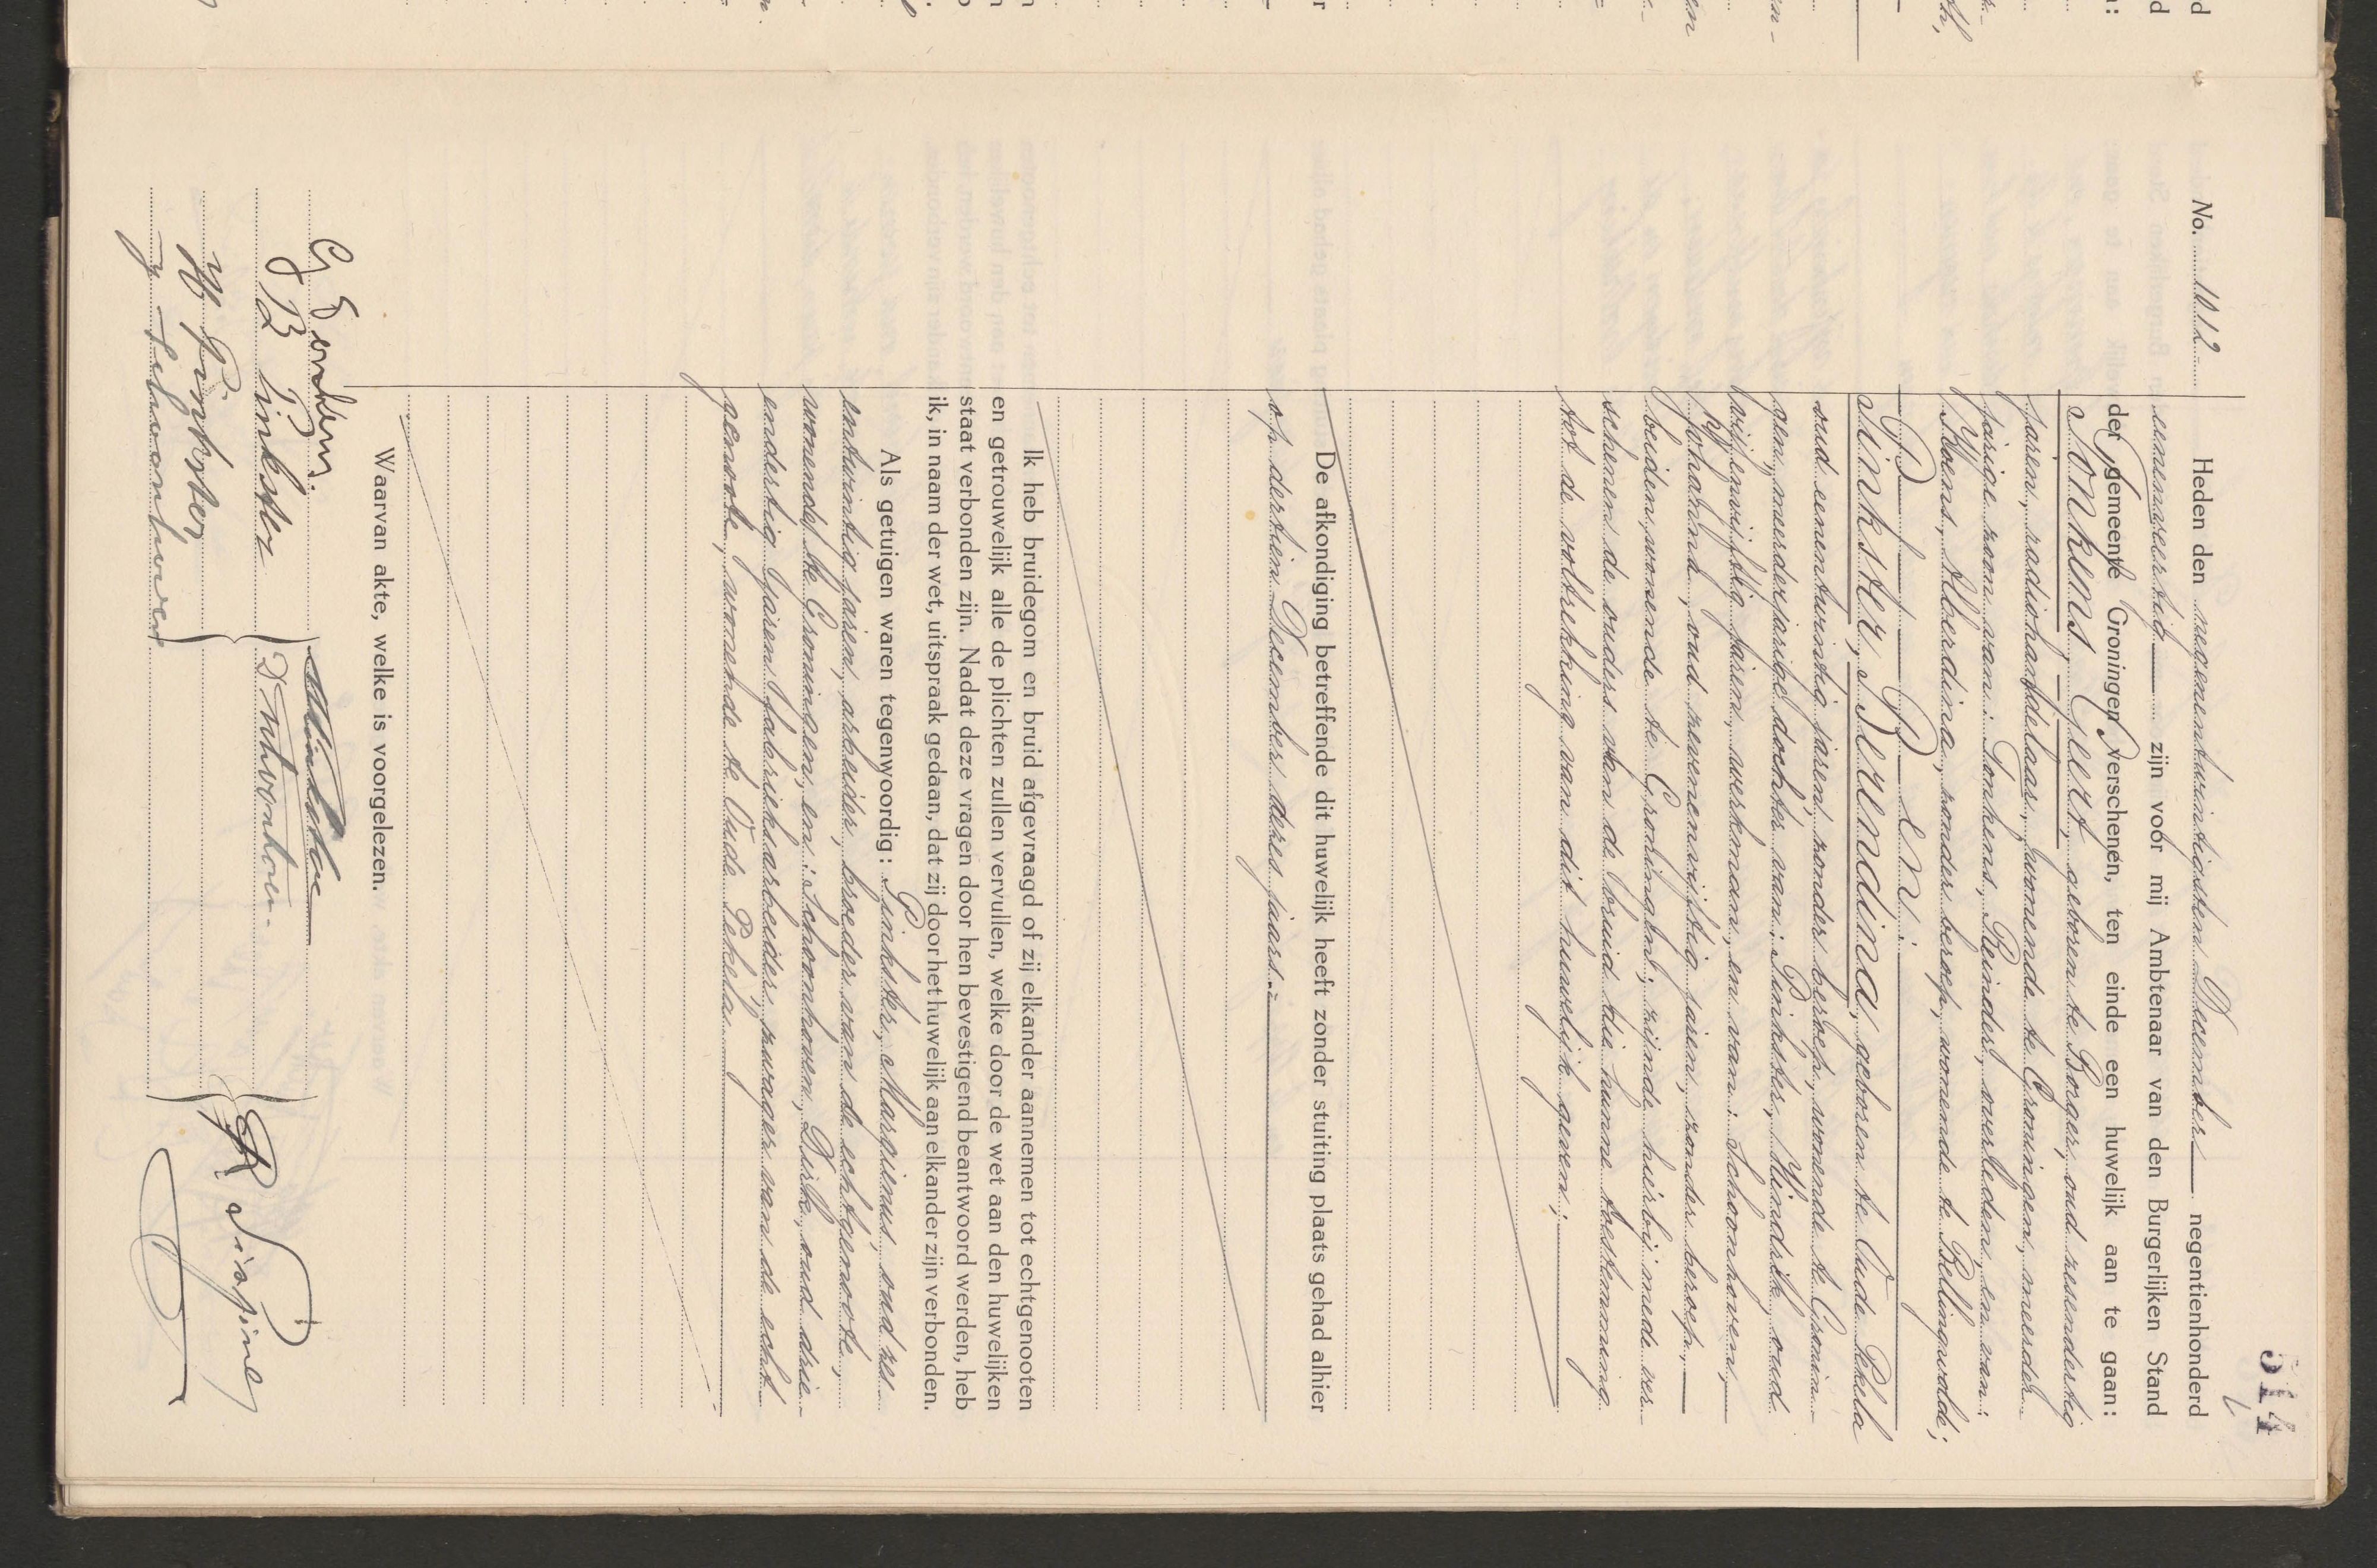 514
No. 1012
Heden den negenentwintigsten December negentienhonderd
eenenveertig zijn voor mij Ambtenaar van den Burgerlijken Stand
der gemeente Groningen verschenen, ten einde een huwelijk aan te gaan:
Tonkens, Geert, geboren te Borger, oud zesendertig
jaren, radiohandelaar, wonende te Groningen, meerder-
jarige zoon van: Tonkens, Reindert, overleden, en van:
Koens, Alberdina, zonder beroep, wonende te Bellingwolde;
en:
Pinkster, Berendina, geboren te Oude Pekela
oud eenentwintig jaren, zonder beroep, wonende te Gronin-
gen, meerderjarige dochter van: Pinkster, Hindrik, oud
vijfenvijftig jaren, werkman, en van: Schoonhoven,
Johanna, oud zevenenvijftig jaren, zonder beroep,
beiden wonende te Groningen; zijnde hierbij mede ver-
schenen de ouders van de bruid die hunne toestemming
tot de voltrekking van dit huwelijk geven;
De afkondiging betreffende dit huwelijk heeft zonder stuiting plaats gehad alhier
op dertien December dezes jaars.
Ik heb bruidegom en bruid afgevraagd of zij elkander aannemen tot echtgenooten
en getrouwelijk alle de plichten zullen vervullen, welke door de wet aan den huwelijken
staat verbonden zijn. Nadat deze vragen door hen bevestigend beantwoord werden, heb
ik, in naam der wet, uitspraak gedaan, dat zij door het huwelijk aan elkander zijn verbonden.
Als getuigen waren tegenwoordig: Pinkster, Marguienus, oud zes-
entwintig jaren, arbeider, broeder van de echtgenoote,
wonende te Groningen, en: Schoonhoven, Dirk, oud drie-
endertig jaren fabrieksarbeider, zwager van de echt-
genoote, wonende te Oude Pekela
Waarvan akte, welke is voorgelezen.
G Tonkens.
B Pinkster
H Pinkster
J Schoonhoven
D Schoonhoven.